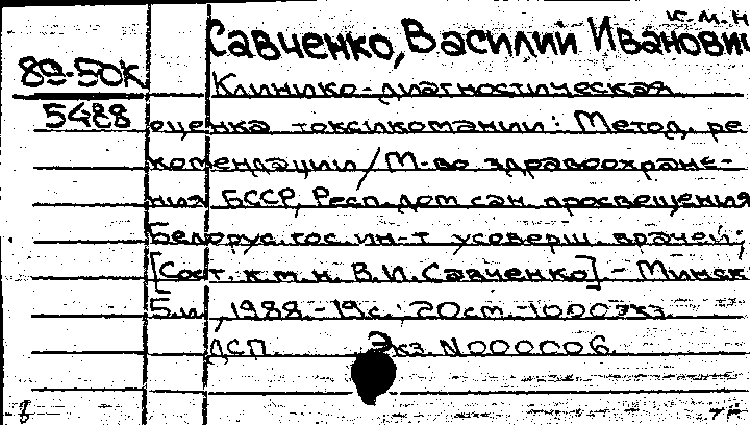 к.м.н
Савченко, Василий Иванович
89-50К
Клинико-диагностическая
5488 оценка токсикомании: Метод. ре
комендации / М-во здравоохране-
ния БССР, Респ. дом сан. просвещения
Белорус. гос. ин-т усоверш. врачей;
[Сост. к.м.н. В.И. Савченко] - Минск
Б.и., 1988. - 19 с.; 20 см. - 1000 экз.
ДСП Экз. N000006.